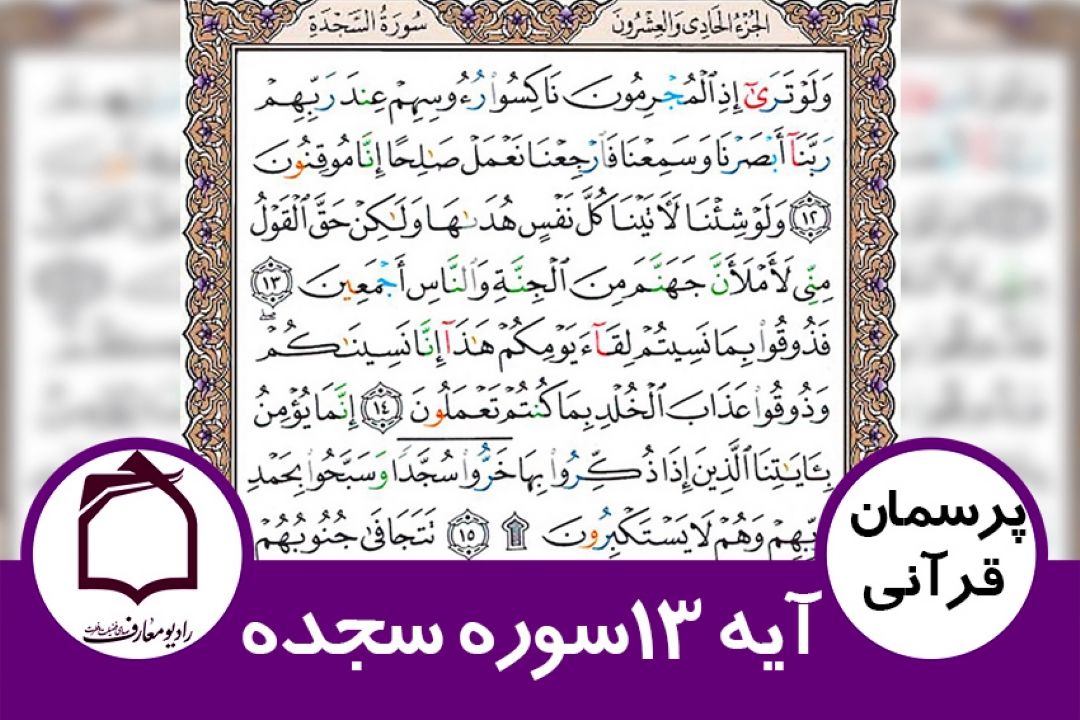 الجُزْءُ الحَادِي وَالعِشْرُونَ
سُورَةُ السَّجْدَةِ
وَلَوْ تَرَىٰٓ إِذِ ٱلْمُجْرِمُونَ نَاكِسُوا۟ رُءُوسِهِمْ عِندَ رَبِّهِمْ
رَبَّنَآ أَبْصَرْنَا وَسَمِعْنَا فَٱرْجِعْنَا نَعْمَلْ صَٰلِحًا إِنَّا مُوقِنُونَ
١٢ وَلَوْ شِئْنَا لَأٓتَيْنَا كُلَّ نَفْسٍ هُدَىٰهَا وَلَٰكِنْ حَقَّ ٱلْقَوْلُ
مِنِّى لَأَمْلَأَنَّ جَهَنَّمَ مِنَ ٱلْجِنَّةِ وَٱلنَّاسِ أَجْمَعِينَ ١٣
فَذُوقُوا۟ بِمَا نَسِيتُمْ لِقَآءَ يَوْمِكُمْ هَٰذَآ إِنَّا نَسِينَٰكُمْ
وَذُوقُوا۟ عَذَابَ ٱلْخُلْدِ بِمَا كُنتُمْ تَعْمَلُونَ ١٤ إِنَّمَا يُؤْمِنُ
بِـَٔايَٰتِنَا ٱلَّذِينَ إِذَا ذُكِّرُوا۟ بِهَا خَرُّوا۟ سُجَّدًا وَسَبَّحُوا۟ بِحَمْدِ
رَبِّهِمْ وَهُمْ لَا يَسْتَكْبِرُونَ ۩ ١٥ تَتَجَافَىٰ جُنُوبُهُمْ
پرسمان
قرآنی
آیه ۱۳سوره سجده
رادیو معارف